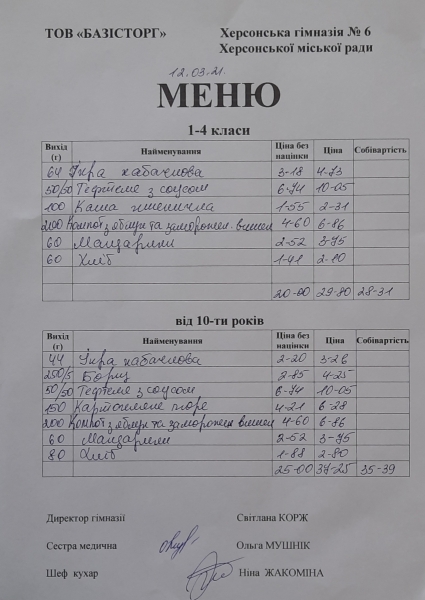 ТОВ «БАЗІСТОРГ» Херсонська гімназія № 6
Херсонської міської ради
12.03.21.
МЕНЮ
1-4 класи
Вихід (г) Найменування Ціна без націнки Ціна Собівартість
64 Ікра кабачкова 3-18 4-73
50/50 Тефтелє з соусом 6-74 10-05
100 Каша пшенична 1-55 2-31
200 Компот з яблук та заморожен. вишен 4-60 6-86
60 Мандарини 2-52 3-75
60 Хліб 1-41 2-10
20-00 29-80 28-31
від 10-ти років
Вихід (г) Найменування Ціна без націнки Ціна Собівартість
44 Ікра кабачкова 2-20 3-26
250/5 Борщ 2-85 4-25
50/50 Тефтелє з соусом 6-74 10-05
150 Картопляне пюре 4-21 6-28
200 Компот з яблук та заморожен вишен 4-60 6-86
60 Мандарини 2-52 3-75
80 Хліб 1-88 2-80
25-00 37-25 35-39
Директор гімназії Світлана КОРЖ
Сестра медична Ольга МУШНІК
Шеф кухар Ніна ЖАКОМІНА